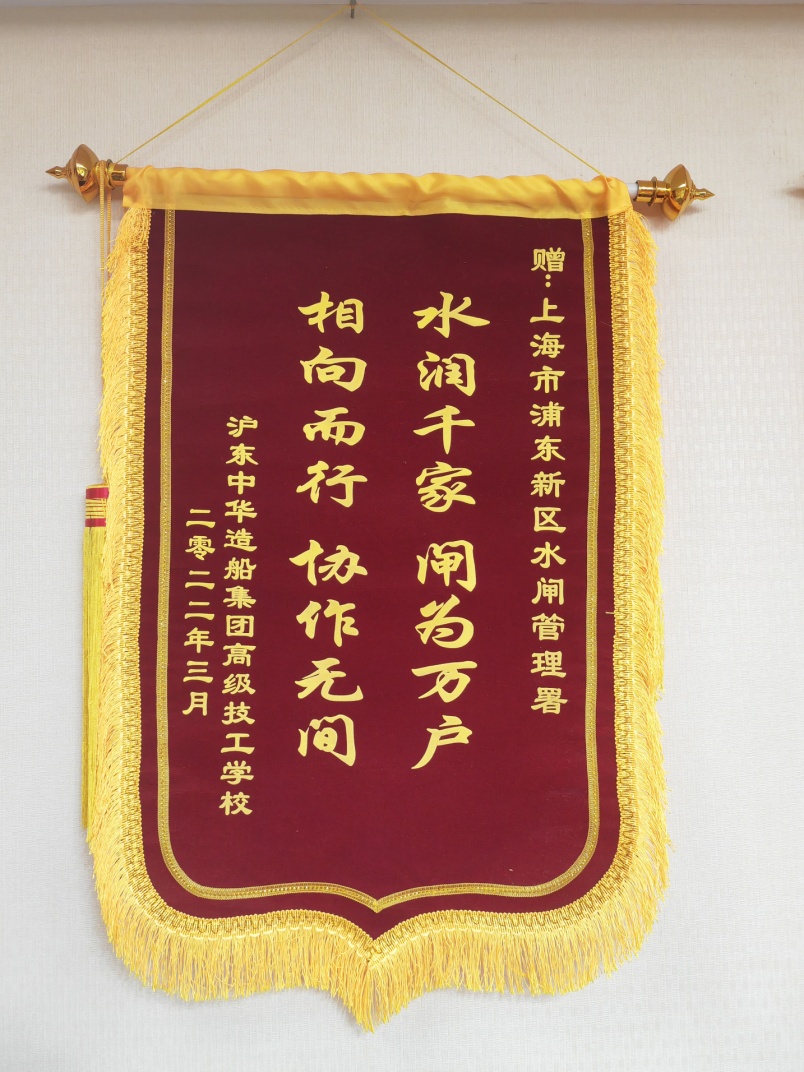 赠:上海市浦东新区水闸管理署
水润千家 闸为万户
相向而行 协作无间
沪东中华造船集团高级技工学校
二零二二年三月